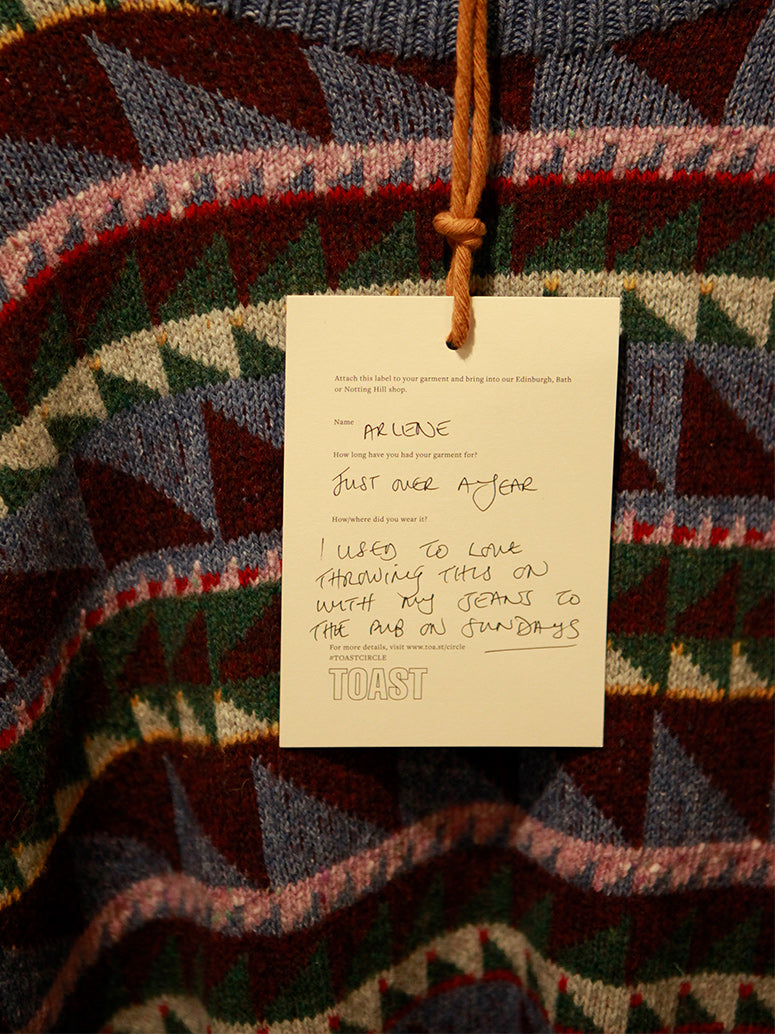 Attach this label to your garment and bring into our Edinburgh, Bath
or Notting Hill shop.
Name ARLENE
How long have you had your garment for?
JUST OVER A YEAR
How/where did you wear it?
I USED TO LOVE
THROWING THIS ON
WITH MY JEANS TO
THE PUB ON SUNDAYS
For more details, visit www.toa.st/circle
#TOASTCIRCLE
TOAST